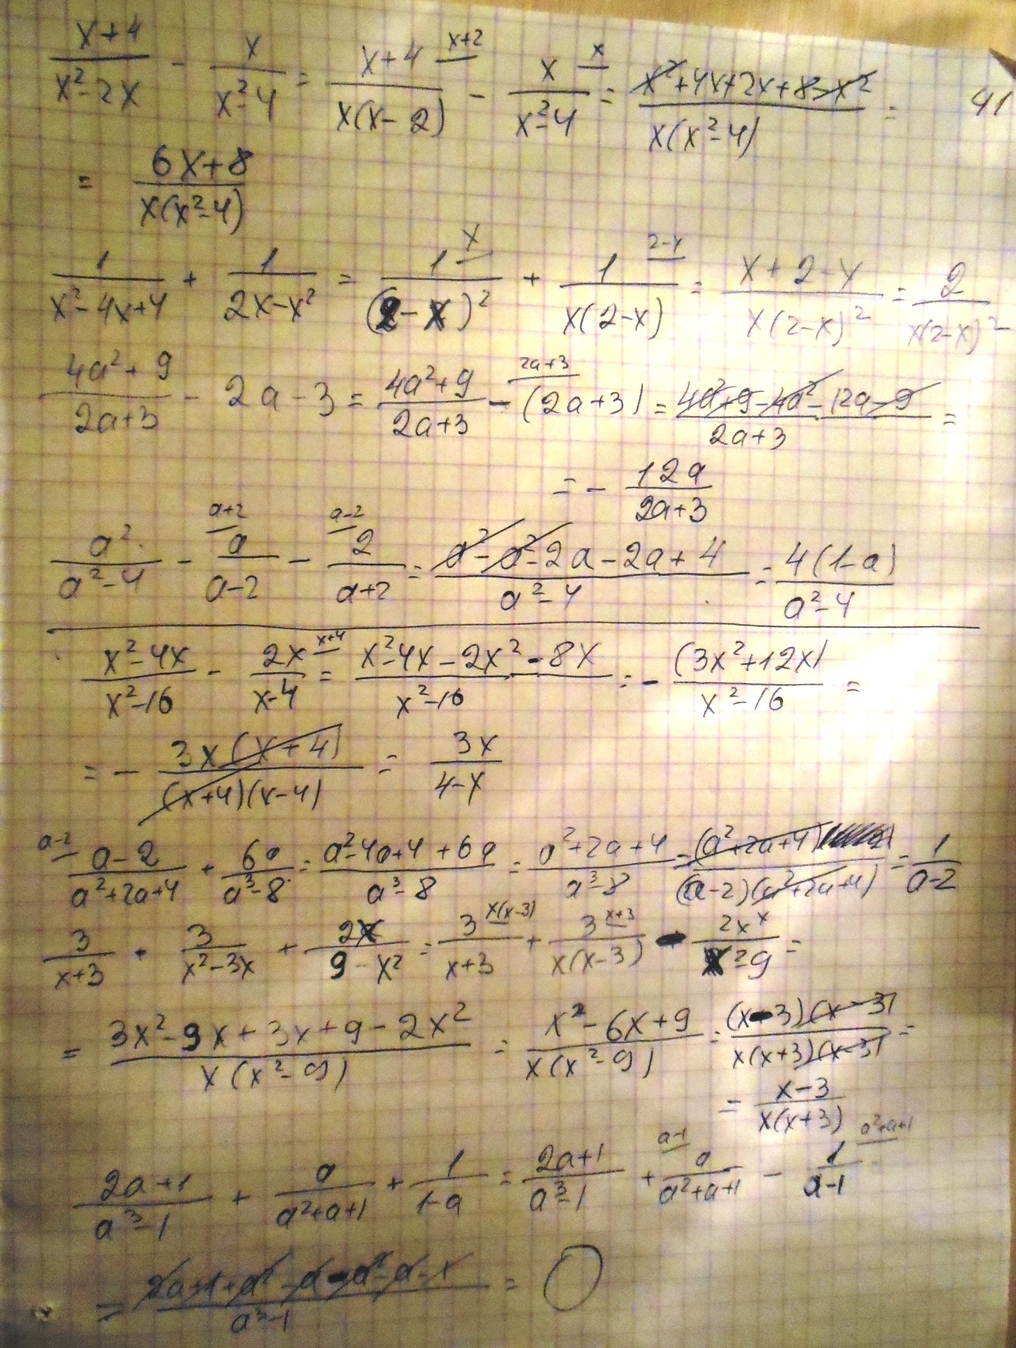 (x+4)/(x²-2x) - x/(x²-4) = (x+4)/(x(x-2)) x+2 - x/(x²-4) x = (x²+4x+2x+8-x²)/(x(x²-4)) = 41
= (6x+8)/(x(x²-4))
1/(x²-4x+4) + 1/(2x-x²) = 1/(2-x)² x + 1/(x(2-x)) 2-x = (x+2-x)/(x(2-x)²) = 2/(x(2-x)²)
(4a²+9)/(2a+3) - 2a-3 = (4a²+9)/(2a+3) - (2a+3) 2a+3 = (4a²+9-4a²-12a-9)/(2a+3) =
= - 12a/(2a+3)
a²/(a²-4) - a/(a-2) a+2 - 2/(a+2) a-2 = (a²-a²-2a-2a+4)/(a²-4) = 4(1-a)/(a²-4)
(x²-4x)/(x²-16) - 2x/(x-4) x+4 = (x²-4x-2x²-8x)/(x²-16) = - (3x²+12x)/(x²-16) =
= - 3x(x+4)/((x+4)(x-4)) = 3x/(4-x)
a-2 (a-2)/(a²+2a+4) + 6a/(a³-8) = (a²-4a+4+6a)/(a³-8) = (a²+2a+4)/(a³-8) = (a²+2a+4)/((a-2)(a²+2a+4)) = 1/(a-2)
3/(x+3) · 3/(x²-3x) + 2x/(9-x²) = 3/(x+3) x(x-3) + 3/(x(x-3)) x+3 - 2x/(x²-9) x =
= (3x²-9x+3x+9-2x²)/(x(x²-9)) = (x²-6x+9)/(x(x²-9)) = (x-3)(x-3)/(x(x+3)(x-3)) =
= (x-3)/(x(x+3))
(2a+1)/(a³-1) + a/(a²+a+1) + 1/(1-a) = (2a+1)/(a³-1) + a/(a²+a+1) a-1 - 1/(a-1) a²+a+1
= (2a+1+a²-a-a²-a-1)/(a³-1) = 0